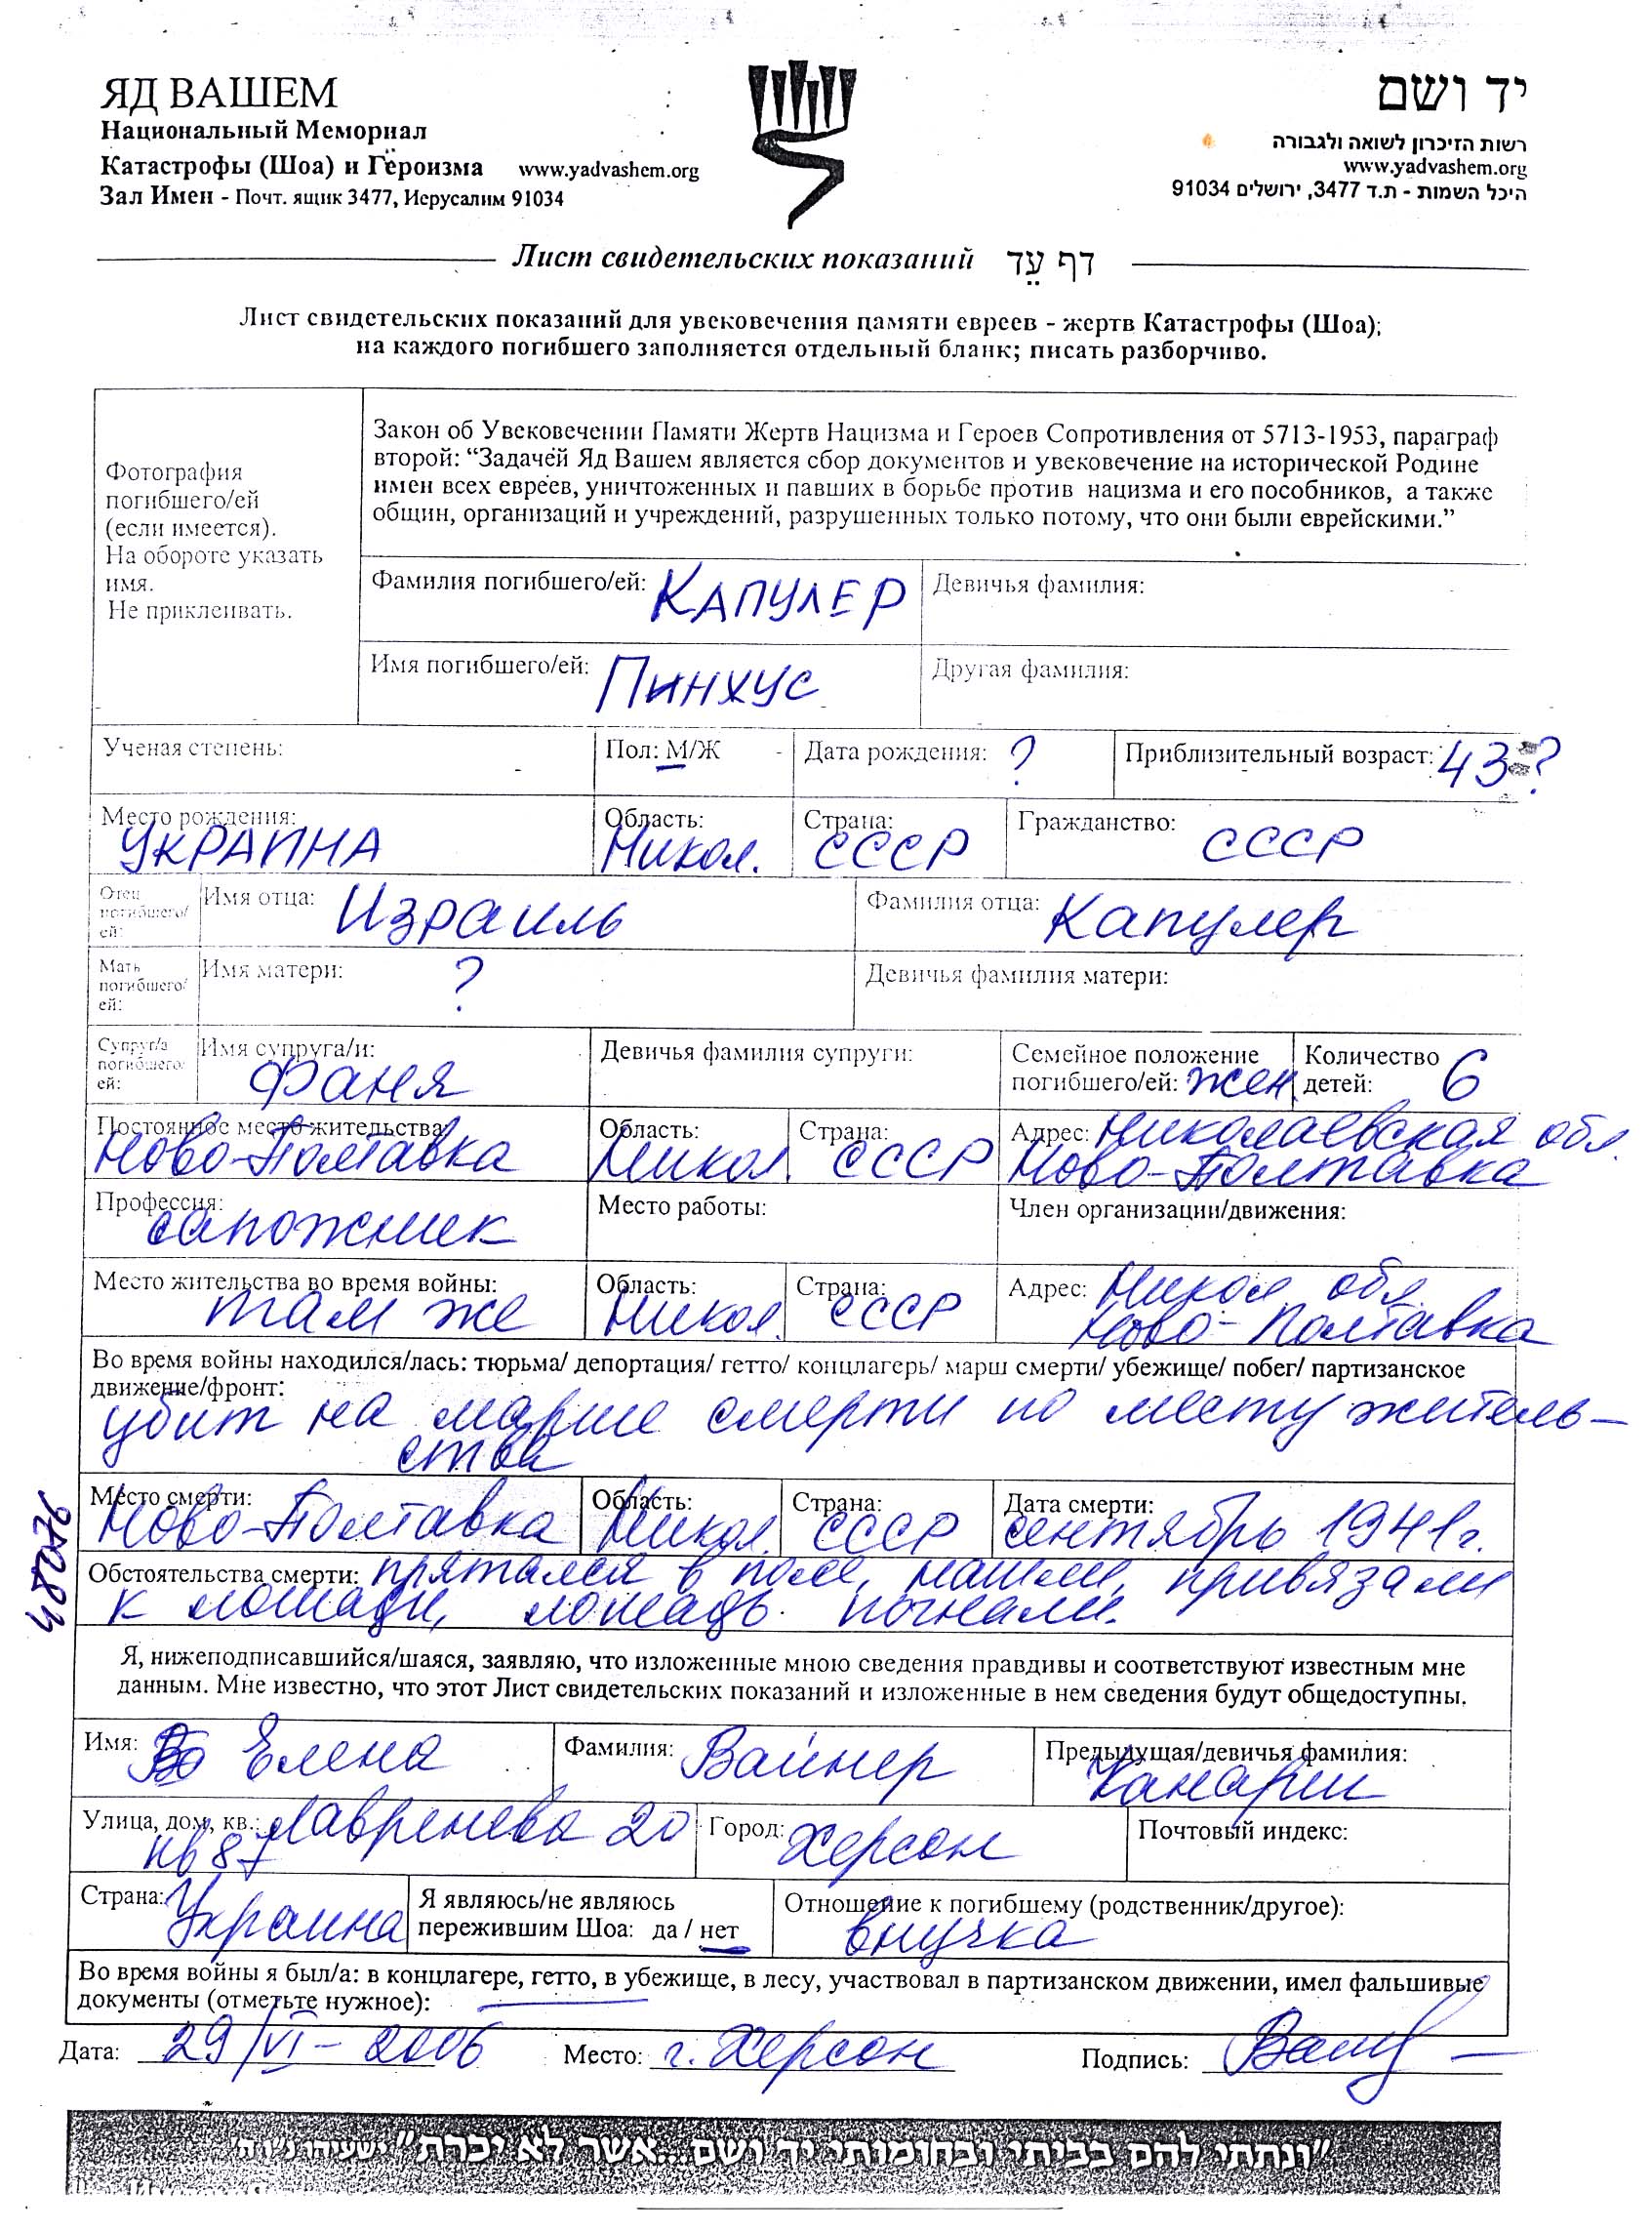 ЯД ВАШЕМ
Национальный Мемориал
Катастрофы (Шоа) и Героизма www.yadvashem.org
Зал Имен - Почт. ящик 3477, Иерусалим 91034
יד ושם
רשות הזיכרון לשואה ולגבורה
www.yadvashem.org
היכל השמות - ת.ד 3477, ירושלים 91034
Лист свидетельских показаний דף עֵד
Лист свидетельских показаний для увековечения памяти евреев - жертв Катастрофы (Шоа);
на каждого погибшего заполняется отдельный бланк; писать разборчиво.
Фотография
погибшего/ей
(если имеется).
На обороте указать
имя.
Не приклеивать.
Закон об Увековечении Памяти Жертв Нацизма и Героев Сопротивления от 5713-1953, параграф
второй: “Задачей Яд Вашем является сбор документов и увековечение на исторической Родине
имен всех евреев, уничтоженных и павших в борьбе против нацизма и его пособников, а также
общин, организаций и учреждений, разрушенных только потому, что они были еврейскими.”
Фамилия погибшего/ей: КАПУЛЕР Девичья фамилия:
Имя погибшего/ей: ПИНХУС Другая фамилия:
Ученая степень: Пол: М/Ж Дата рождения: ? Приблизительный возраст: 43 ?
Место рождения: УКРАИНА Область: Никол. Страна: СССР Гражданство: СССР
Отец погибшего/ей: Имя отца: Израиль Фамилия отца: Капулер
Мать погибшего/ей: Имя матери: ? Девичья фамилия матери:
Супруг/а погибшего/ей: Имя супруга/и: Фаня Девичья фамилия супруги: Семейное положение погибшего/ей: жен. Количество детей: 6
Постоянное место жительства: Ново-Полтавка Область: Никол. Страна: СССР Адрес: Николаевская обл. Ново-Полтавка
Профессия: сапожник Место работы: Член организации/движения:
Место жительства во время войны: там же Область: Никол. Страна: СССР Адрес: Никол обл. Ново-Полтавка
Во время войны находился/лась: тюрьма/ депортация/ гетто/ концлагерь/ марш смерти/ убежище/ побег/ партизанское
движение/фронт:
убит на марше смерти по месту житель-
ства
Место смерти: Ново-Полтавка Область: Никол. Страна: СССР Дата смерти: сентябрь 1941г.
Обстоятельства смерти: прятался в поле, нашли, привязали
к лошади, лошадь погнали.
48076
Я, нижеподписавшийся/шаяся, заявляю, что изложенные мною сведения правдивы и соответствуют известным мне
данным. Мне известно, что этот Лист свидетельских показаний и изложенные в нем сведения будут общедоступны.
Имя: Елена Фамилия: Вайнер Предыдущая/девичья фамилия: Канарш
Улица, дом, кв.: Лавренева 20 кв 87 Город: Херсон Почтовый индекс:
Страна: Украина Я являюсь/не являюсь пережившим Шоа: да / нет Отношение к погибшему (родственник/другое): внучка
Во время войны я был/а: в концлагере, гетто, в убежище, в лесу, участвовал в партизанском движении, имел фальшивые
документы (отметьте нужное):
Дата: 29/VI-2006 Место: г. Херсон Подпись:
"ונתתי להם בביתי ובחומותי יד ושם...אשר לא יכרת" ישעיהו נ"ו ה'